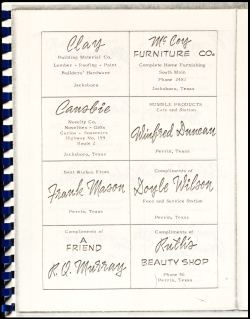 Clay
Building Material Co.
Lumber - Roofing - Paint
Builders' Hardware
Jacksboro
McCoy
FURNITURE CO.
Complete Home Furnishing
South Main
Phone 2481
Jacksboro, Texas
Canobie
Novelty Co.
Novelties - Gifts
Curios - Souvenirs
Highway No. 199
Route 2
Jacksboro, Texas
HUMBLE PRODUCTS
Cafe and Station
Winfred Duncan
Perrin, Texas
Best Wishes From
Frank Mason
Perrin, Texas
Compliments of
Doyle Wilson
Feed and Service Station
Perrin, Texas
Compliments of
A
FRIEND
R. Q. Murray
Compliments of
Ruth's
BEAUTY SHOP
Phone 86
Perrin, Texas